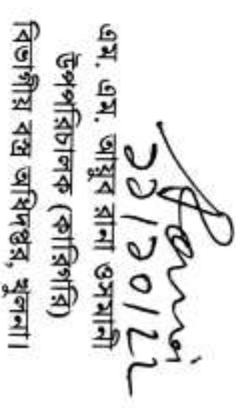 ২২/১০/২২
এম. এম. আয়ুব রানা ওসমানী
উপপরিচালক (কারিগরি)
বিভাগীয় বস্ত্র অধিদপ্তর, খুলনা।